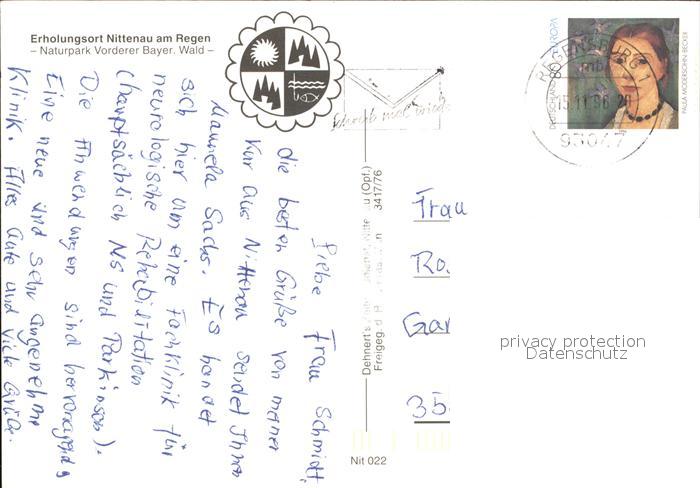 Erholungsort Nittenau am Regen
– Naturpark Vorderer Bayer. Wald –
Liebe Frau Schmidt,
die besten Grüße von meiner
Kur aus Nittenau sendet Ihnen
Manuela Sachs. Es handet
sich hier um eine Fachklinik für
neurologische Rehabilitation
(hauptsächlich MS und Parkinson).
Die Anwendungen sind hervorragend
Eine neue und sehr angenehme
Klinik. Alles Gute und viele Grüße.
Dehnert's
Freigeg. d.
3417/76
Nit 022
Schreib mal wieder
DEUTSCHLAND 80 EUROPA
PAULA MODERSOHN-BECKER
REGENSBURG 1
mb
15.11.96-20
93047
Frau
Ro.
Gar
35
privacy protection
Datenschutz